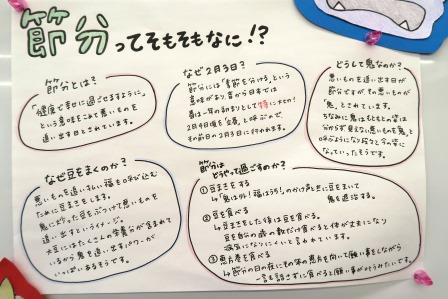 節分ってそもそもなに!?
節分とは?
「健康で幸せに過ごせますように」
という意味をこめて悪いものを
追い出す日とされています。
なぜ2月3日?
節分には「季節を分ける」という
意味があり、昔から日本では
春は一年の始まりとして特に大切!
2月4日頃を「立春」と呼ぶので、
その前日の2月3日に行われます。
どうして鬼なのか?
悪いものを追い出す日が
節分ですが、その悪いものが
「鬼」とされています。
ちなみに鬼はもともとの姿は
分からず、見えない悪いものを「鬼」と
呼ぶようになり
なっていったそうです。
なぜ豆をまくのか?
悪いものを追い払い、福を呼び込む
ために豆まきをします。
鬼にむかって豆をぶつけて悪いものを
追い出すというイメージ。
大豆にはたくさんの栄養分が含まれて
いるから鬼を追い出すパワーが
いっぱいあるそうです。
節分は
どうやって過ごすのか?
①豆まきをする
↳「鬼はゝ外!福はうち!」のかけ声と共に豆をまいて
鬼を退治する。
②豆を食べる
↳豆まきをした後は豆を食べる。
豆を自分の歳の数だけ食べると体が丈夫になり
病気になりにくいと言われています。
③恵方巻を食べる
↳節分の日の夜にその年の恵方を向いて願い事をしながら
一言も話さずに食べると願い事が叶うみたいです。